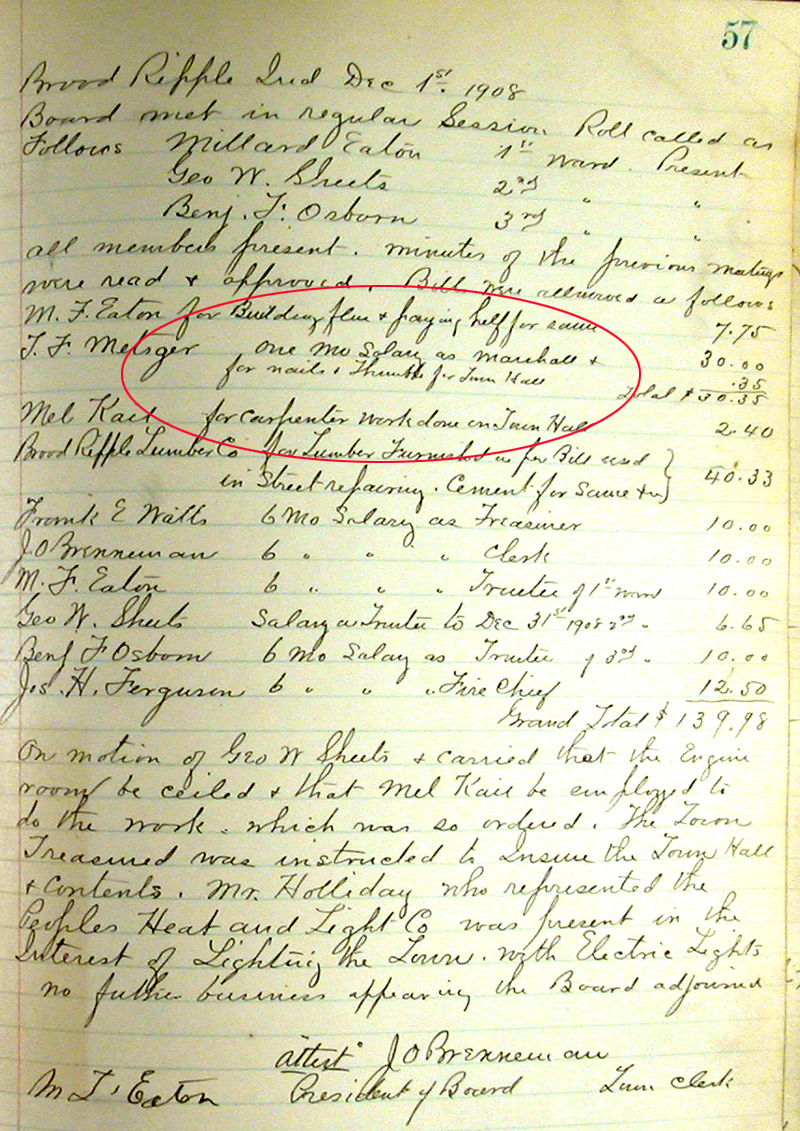 57
Broad Ripple Ind Dec 1st. 1908
Board met in regular Session. Roll called as
Follows Millard Eaton 1st Ward. Present
Geo W. Sheets 2nd " "
Benj. F. Osborn 3rd " "
all members present. minutes of the previous meetings
were read & approved. Bills were allowed as follows
M. F. Eaton for Building flue & paying help for same 7.75
T. F. Metsger one mo Salary as marshall & 30.00
for nails & Thimble for Town Hall .35
Total $ 30.35
Mel Kail for carpenter work done on Town Hall 2.40
Broad Ripple Lumber Co for Lumber Furnished as per Bill used
in Street repairing. Cement for Same 40.33
Frank E Watts 6 Mo Salary as Treasurer 10.00
J O Brenneman 6 " " " Clerk 10.00
M. F. Eaton 6 " " " Trustee of 1st ward 10.00
Geo W. Sheets Salary as Trustee to Dec 31st 1908 2nd " 6.65
Benj F Osborn 6 Mo Salay as Trustee of 3rd " 10.00
Jos. H. Ferguson 6 " " " Fire Chief 12.50
Grand Total $ 139.98
On motion of Geo W Sheets & carried that the Engine
room be ceiled & that Mel Kail be employed to
do the work. which was so ordered. The Town
Treasured was instructed to Insure the Town Hall
& contents. Mr. Holliday who represented the
Peoples Heat and Light Co was present in the
Interest of Lighting the Town. with Electric Lights
no futher business appearing the Board adjourned
attest J O Brenneman
M F Eaton President of Board Town Clerk